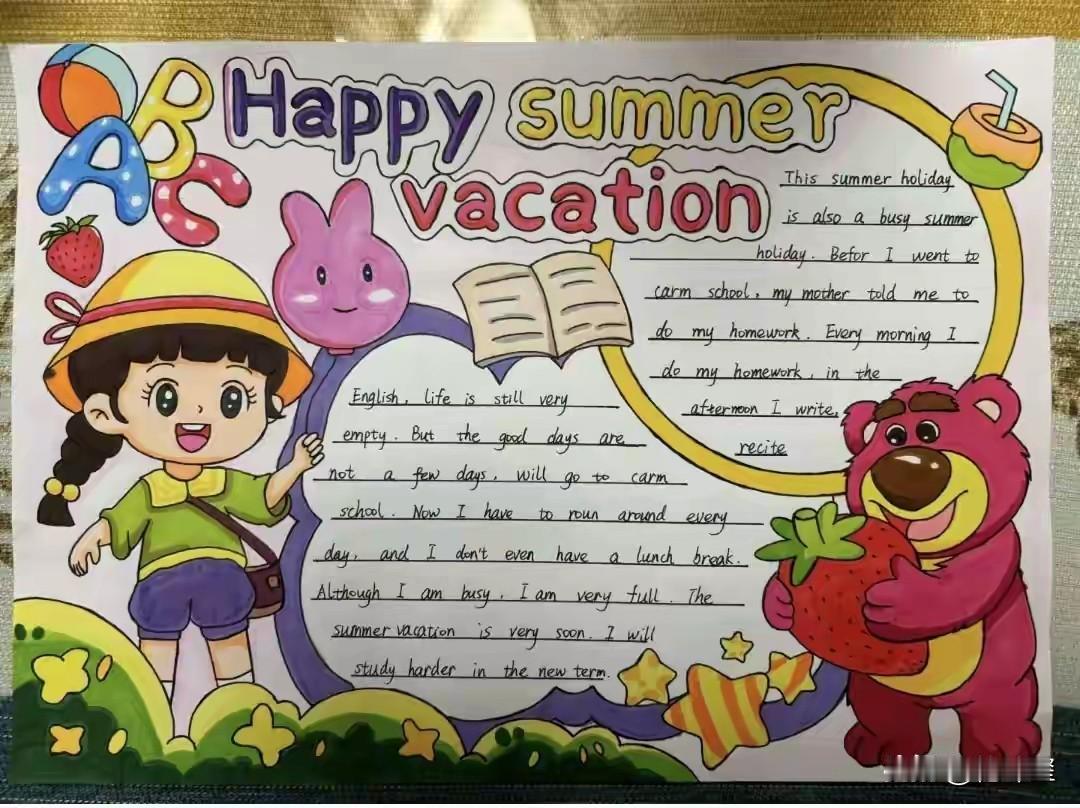 ABC
Happy summer
vacation
This summer holiday
is also a busy summer
holiday. Befor I went to
carm school, my mother told me to
do my homework. Every morning I
do my homework, in the
afternoon I write,
recite
English, life is still very
empty. But the good days are
not a few days, will go to carm
school. Now I have to roun around every
day, and I don't even have a lunch break.
Although I am busy, I am very full. The
summer vacation is very soon. I will
study harder in the new term.